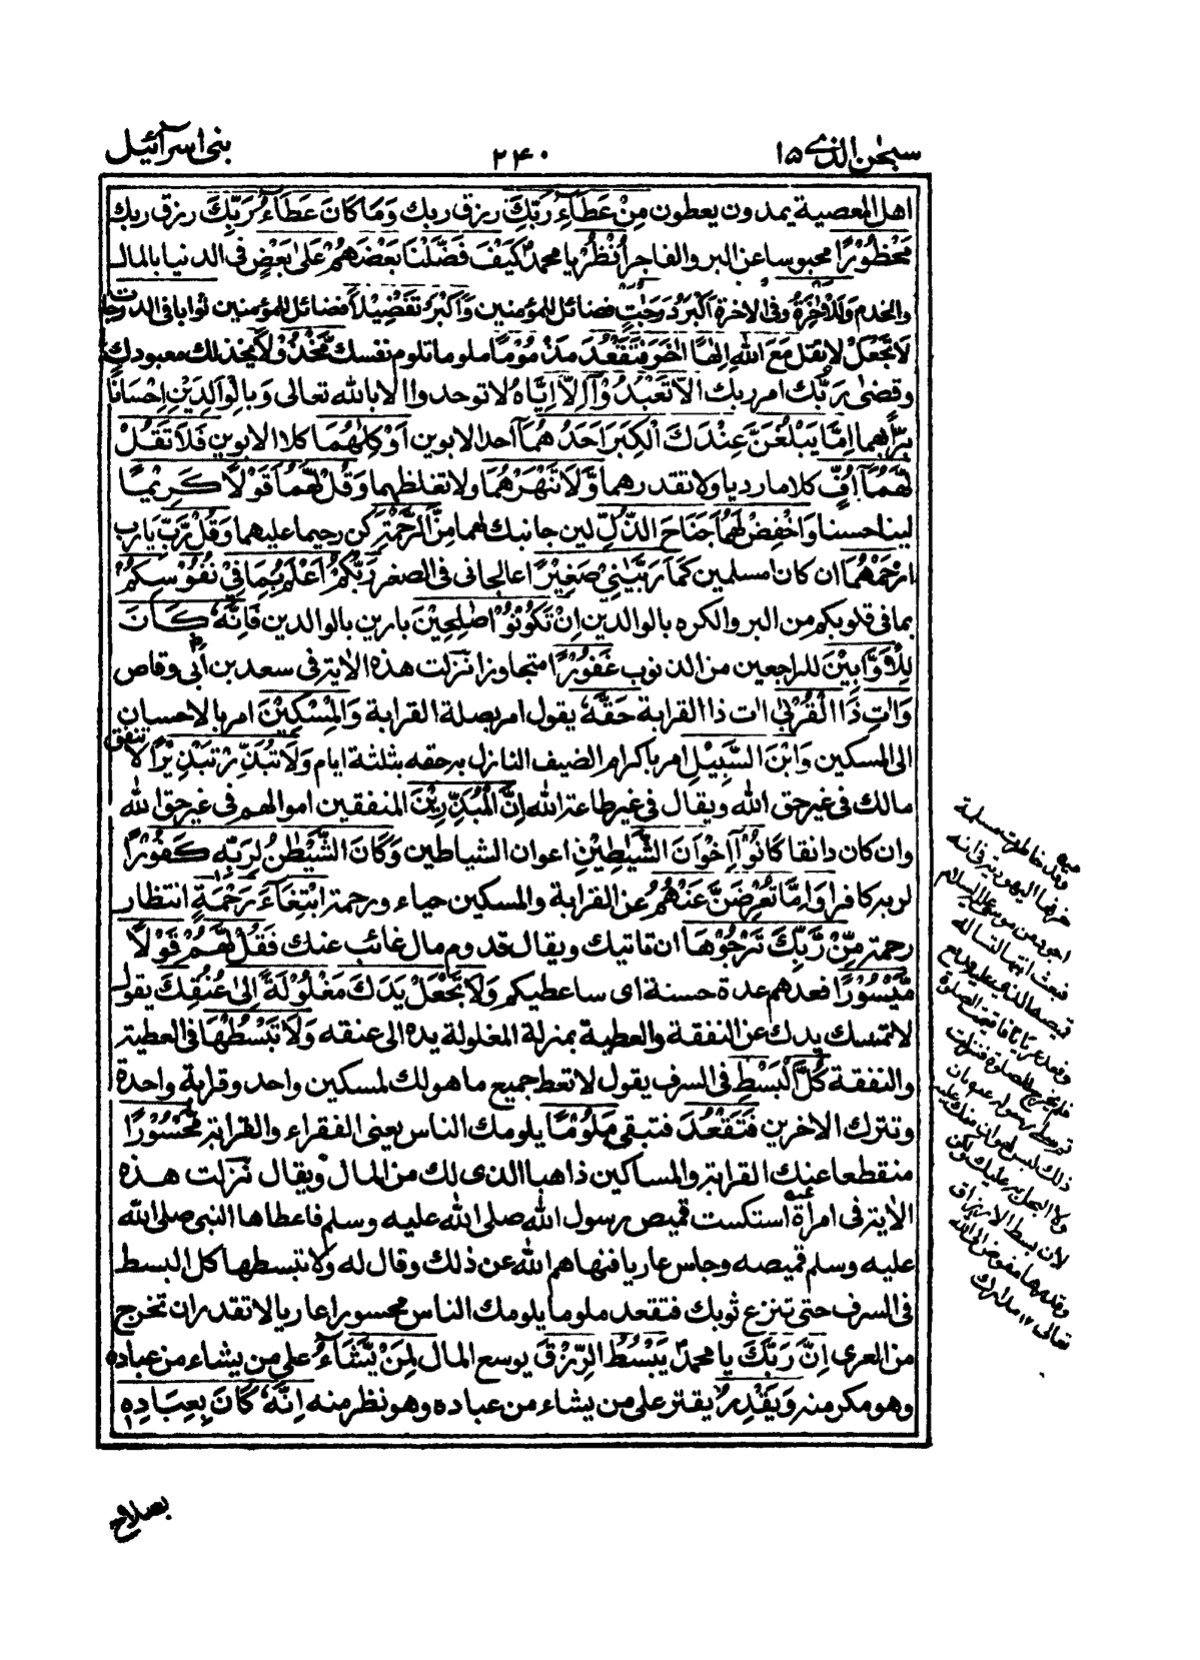 سبحٰن الذی ۱۵
۲۴۰
بنی اسرآئیل
اهل المعصية يمدون يعطون مِنْ عَطَآءِ رَبِّكَ رزق ربك وَمَا كَانَ عَطَآءُ رَبِّكَ رزق ربك
مَحْظُوْرًا محبوسا عن البر والفاجر اُنْظُرْ يا محمد كَيْفَ فَضَّلْنَا بَعْضَهُمْ عَلٰى بَعْضٍ فى الدنيا بالمال
والخدم وَلَلْاٰخِرَةُ وفى الاخرة اَكْبَرُ دَرَجٰتٍ فضائل للمؤمنين وَّاَكْبَرُ تَفْضِيْلًا فضائل للمؤمنين ثوابا فى الدرجات
لَا تَجْعَلْ لا تقل مَعَ اللّٰهِ اِلٰهًا اٰخَرَ فَتَقْعُدَ مَذْمُوْمًا ملوما تلوم نفسك مَّخْذُوْلًا يخذلك معبودك
وَقَضٰى رَبُّكَ امر ربك اَلَّا تَعْبُدُوْٓا اِلَّآ اِيَّاهُ لا توحدوا الا بالله تعالى وَبِالْوَالِدَيْنِ اِحْسَانًا
برّا بهما اِمَّا يَبْلُغَنَّ عِنْدَكَ الْكِبَرَ اَحَدُهُمَآ احد الابوين اَوْ كِلٰهُمَا كلا الابوين فَلَا تَقُلْ
لَّهُمَآ اُفٍّ كلاما رديا ولا تقدرهما وَّلَا تَنْهَرْهُمَا ولا تغلظهما وَقُلْ لَّهُمَا قَوْلًا كَرِيْمًا
لينا حسنا وَاخْفِضْ لَهُمَا جَنَاحَ الذُّلِّ لين جانبك لهما مِنَ الرَّحْمَةِ كن رحيما عليهما وَقُلْ رَّبِّ يا رب
ارْحَمْهُمَا ان كانا مسلمين كَمَا رَبَّيٰنِيْ صَغِيْرًا عالجانى فى الصغر رَبُّكُمْ اَعْلَمُ بِمَا فِيْ نُفُوْسِكُمْ
بما فى قلوبكم من البر والكره بالوالدين اِنْ تَكُوْنُوْا صٰلِحِيْنَ بارين بالوالدين فَاِنَّهٗ كَانَ
لِلْاَوَّابِيْنَ للراجعين من الذنوب غَفُوْرًا متجاوزا نزلت هذه الاية فى سعد بن ابى وقاص
وَاٰتِ ذَا الْقُرْبٰى اٰت ذا القرابة حَقَّهٗ يقول امر بصلة القرابة وَالْمِسْكِيْنَ امر بالاحسان
الى المسكين وَابْنَ السَّبِيْلِ امر باكرام الضيف النازل به حقه بثلثة ايام وَلَا تُبَذِّرْ تَبْذِيْرًا لا تنفق
مالك فى غير حق الله ويقال فى غير طاعة الله اِنَّ الْمُبَذِّرِيْنَ المنفقين اموالهم فى غير حق الله
وان كان دانقا كَانُوْٓا اِخْوَانَ الشَّيٰطِيْنِ اعوان الشياطين وَكَانَ الشَّيْطٰنُ لِرَبِّهٖ كَفُوْرًا
لربه كافرا وَاِمَّا تُعْرِضَنَّ عَنْهُمُ عن القرابة والمسكين حياء ورحمة ابْتِغَآءَ رَحْمَةٍ انتظار
رحمة مِّنْ رَّبِّكَ تَرْجُوْهَا ان تاتيك ويقال قدوم مال غائب عنك فَقُلْ لَّهُمْ قَوْلًا
مَّيْسُوْرًا فعدهم عدة حسنة اى ساعطيكم وَلَا تَجْعَلْ يَدَكَ مَغْلُوْلَةً اِلٰى عُنُقِكَ يقول
لا تمسك يدك عن النفقة والعطية بمنزلة المغلولة يده الى عنقه وَلَا تَبْسُطْهَا فى العطية
والنفقة كُلَّ الْبَسْطِ فى السرف يقول لا تعط جميع ما هو لك لمسكين واحد وقرابة واحدة
وتترك الاخرين فَتَقْعُدَ فتبقى مَلُوْمًا يلومك الناس يعنى الفقراء والقرابة مَّحْسُوْرًا
منقطعا عنك القرابة والمساكين ذاهبا الذى لك من المال ويقال نزلت هذه
الاية فى امرأة استكست قميص رسول الله صلى الله عليه وسلم فاعطاها النبى صلى الله
عليه وسلم قميصه وجلس عاريا فنهاهم الله عن ذلك وقال له ولا تبسطها كل البسط
فى السرف حتى تنزع ثوبك فتقعد ملوما يلومك الناس محسورا عاريا لا تقدر ان تخرج
من العرى اِنَّ رَبَّكَ يا محمد يَبْسُطُ الرِّزْقَ يوسع المال لِمَنْ يَّشَآءُ على من يشاء من عباده
وهو مكر منه وَيَقْدِرُ يقتر على من يشاء من عباده وهو نظر منه اِنَّهٗ كَانَ بِعِبَادِهٖ
وقد خاطرت مسلمة
ضرتها اليهودية فى انه
اجود من موسى عليه السلام
فبعث ابنتها تساله
قميصه الذى عليه فدفع
وقعد عريانا فاقيمت الصلوة
فلم يخرج للصلوة فنزلت
ذلك ليس لهوان منك عليه
ولا لبخل به عليك ولكن
لان بسط الارزاق
وقدرها مفوض الى الله
تعالى ۱۲ مدارك
بصلاح